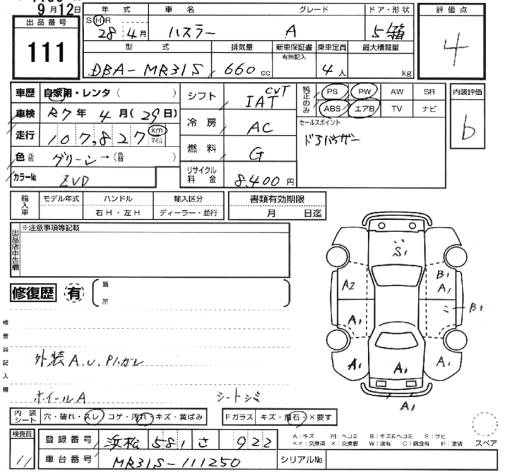 9月12日
出品番号
111
年式 車名 グレード ドア・形状
SHR 28年4月 ハスラー A 5箱
型式 排気量 新車保証書 有無記入 乗車定員 最大積載量
DBA-MR31S 660cc 4人 kg
評価点
4
車歴 自家用・レンタ( )
車検 R7年4月(29日)
走行 107,827 km マイル
色 グリーン→
カラーNo. ZVD
シフト IAT CVT
冷房 AC
燃料 G
リサイクル料金 8,400円
純正のみ PS PW AW SR
ABS エアB TV ナビ
セールスポイント
ドアバイザー
内装評価
b
輸入車 モデル年式 ハンドル 輸入区分 書類有効期限
右H・左H ディーラー・並行 月 日迄
出品店申告欄 ※注意事項等記載
修復歴 有
検査員記入欄
外装A.U.P小ガレ
ホイールA シートシミ
S1
A2 B1 A1
B1
A1 A1
A1 A1 A1
A1
内装シート 穴・破れ・スレ コゲ・汚れ・キズ・黄ばみ Fガラス キズ・飛石 ×要す
スペア
検査員 登録番号 浜松 581 さ 922
11 車台番号 MR31S-111250 シリアルNo.